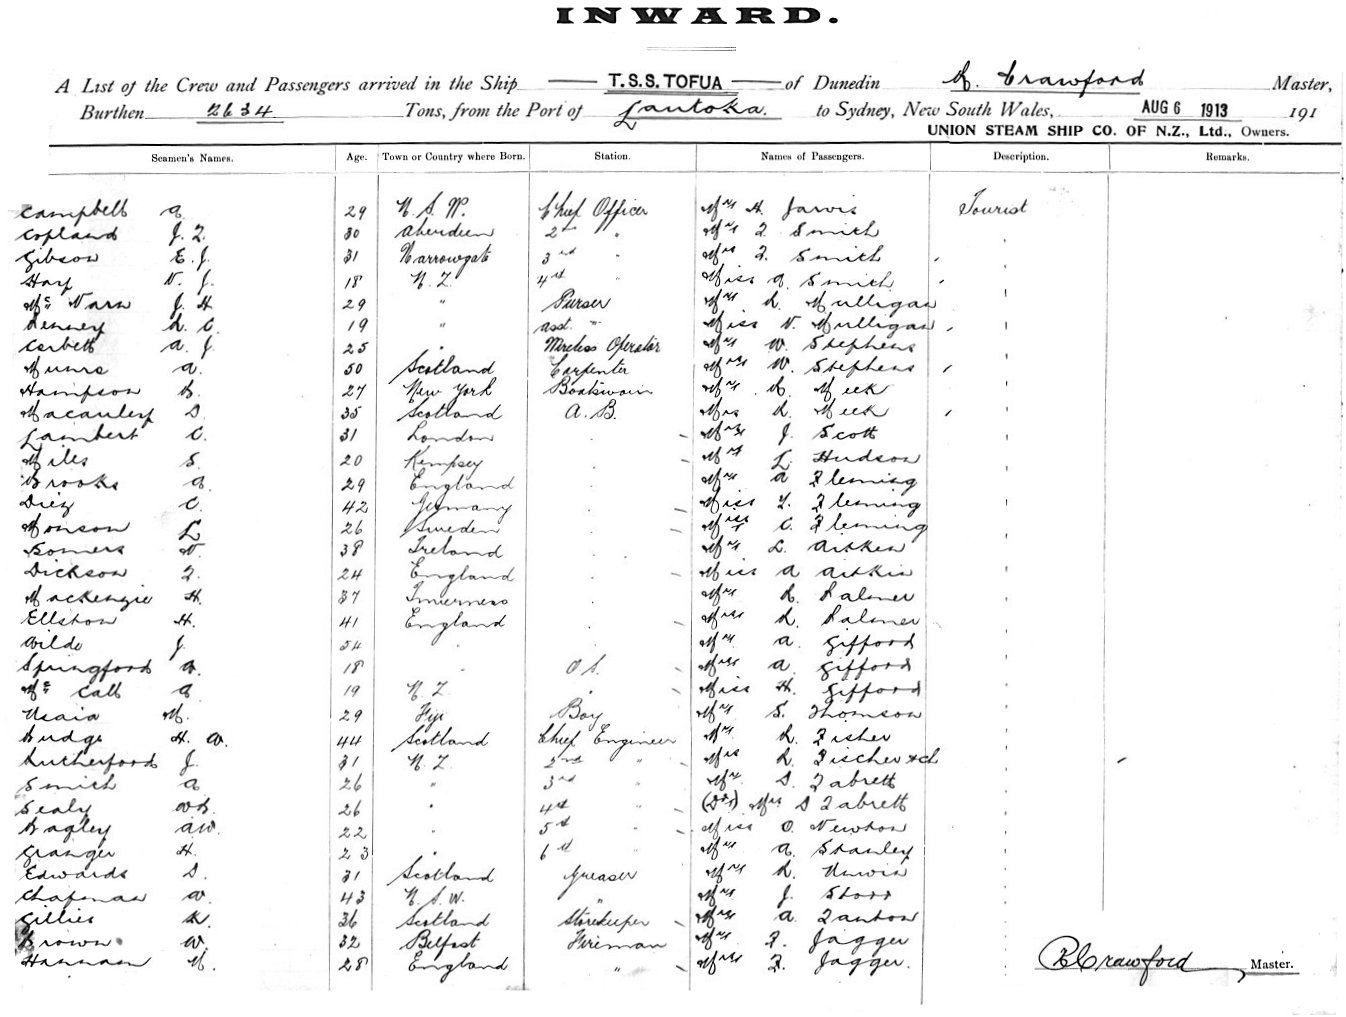 INWARD.
A List of the Crew and Passengers arrived in the Ship T.S.S. TOFUA of Dunedin Crawford Master,
Burthen 2634 Tons, from the Port of Lautoka. to Sydney, New South Wales, AUG 6 1913 191
UNION STEAM SHIP CO. OF N.Z., Ltd., Owners.
Seamen's Names. Age. Town or Country where Born. Station. Names of Passengers. Description. Remarks.
Campbell A 29 N. S. W. Chief Officer Mr H. Jarvis Tourist
Copland J. F. 30 Aberdeen 2nd " Mr F. Smith
Gibson E. J. 31 Harrowgate 3rd " Mrs F. Smith
Hay V. J. 18 N. Z. 4th " Miss A. Smith
J. H 29 " Purser Mr R. Mulligan
Kenney L. C. 19 " Asst. " Miss V. Mulligan
Corbett A. J. 25 Wireless Operator Mr W. Stephens
Munro A. 50 Scotland Carpenter Mrs W. Stephens
Hampson R. 27 New York Boatswain Mr R. Meek
Macauley D. 35 Scotland A. B. Mrs R. Meek
Lambert C. 31 London J. Scott
Miles S. 20 Kempsey Mr L. Hudson
Brooks A. 29 England Mr A Fleming
Diez C. 42 Germany Miss Y. Fleming
Monson L 26 Sweden Miss C. Fleming
Somers V. 38 Ireland Mr L. Aitken
Dickson F. 24 England Miss A Aitkin
Mackenzie H. 37 Inverness Mr R. Palmer
Ellston H. 41 England Mrs R. Palmer
Wilde J. 54 Mr A. Gifford
Springford W. 18 " O S. Mrs A. Gifford
McCall A 19 N. Z. Miss H. Gifford
M. 29 Fiji Boy Mr S. Thomson
Budge H. W. 44 Scotland Chief Engineer Mr R. Fisher
Rutherford J. 31 N. Z. 2nd " Mrs R. Fischer & ch
Smith A 26 " 3rd " Mr S. Fabrett
Sealy 26 " 4th " Mrs S Fabrett
Bagley A W. 22 " 5th " Miss O. Newton
Granger H. 23 " 6th " Mr A. Stanley
Edwards D. 31 Scotland Greaser Mr R. Unwin
Chapman W. 43 N. S. W. " Mr J. Storr
Gillies K. 36 Scotland Storekeeper Mr A. Tanton
Brown W. 32 Belfast Fireman Mr F. Jagger
Hannam M. 28 England " Mrs F. Jagger.
Crawford Master.